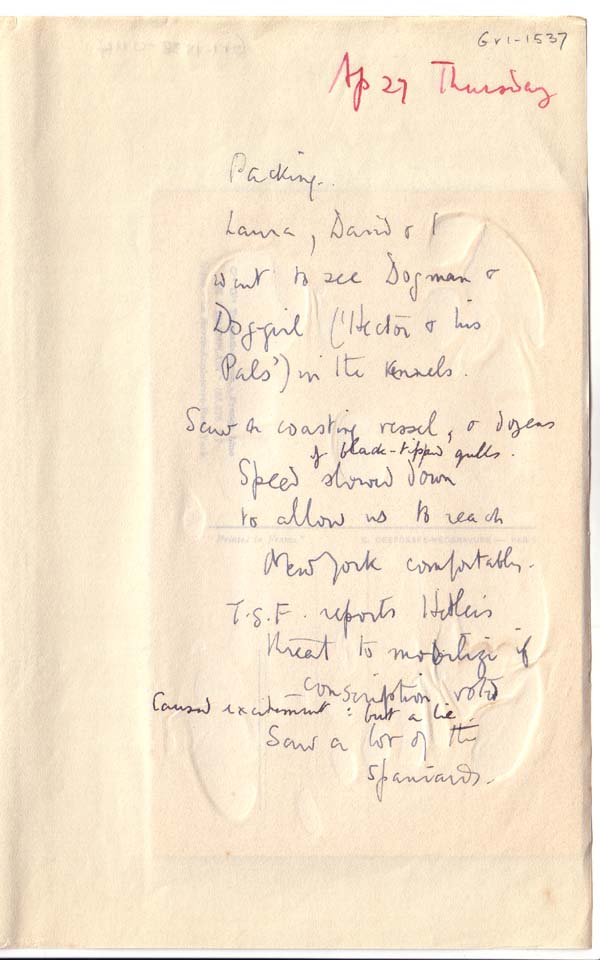 Gv1-1537
Ap 27 Thursday
Packing.
Laura, David & I
went to see Dogman &
Dog-girl ('Hector & his
Pals') in the kennels.
Saw a coasting vessel, & dozens
of black-tipped gulls.
Speed slowed down
to allow us to reach
New York comfortably.
T.S.F. reports Hitler's
threat to mobilize if
conscription voted
Caused excitement: but a lie.
Saw a lot of the
Spaniards.
"Printed in France"